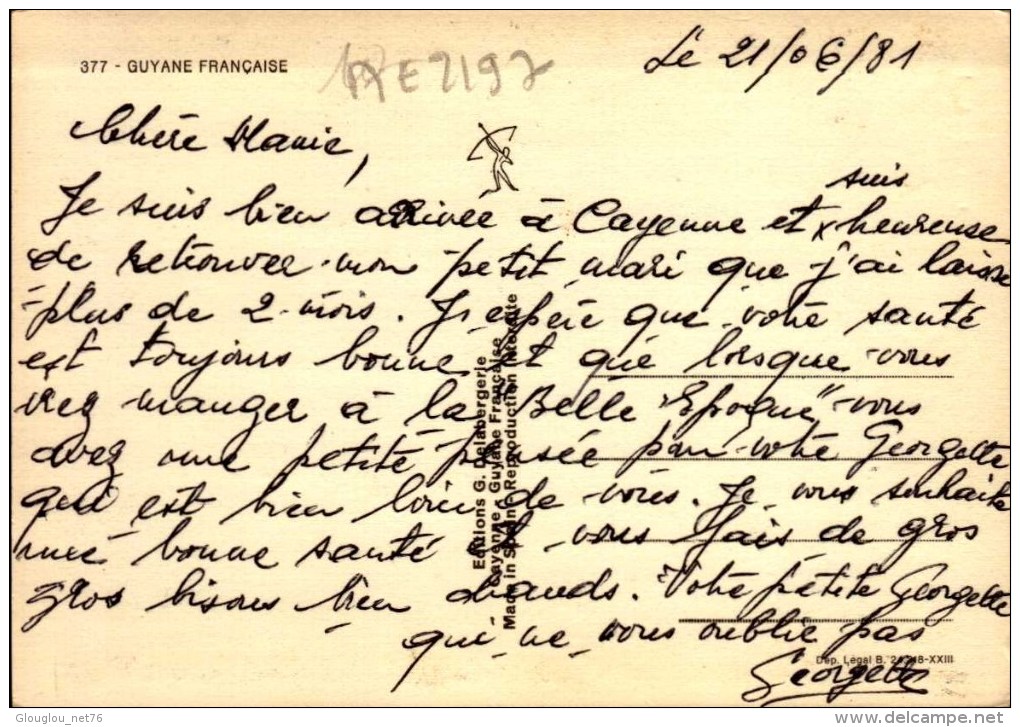 377 - GUYANE FRANÇAISE
Le 21/06/81
Chère Mamie,
suis
Je suis bien arrivée à Cayenne et x heureuse
de retrouver mon petit mari que j'ai laissé
plus de 2 mois. J'espère que votre santé
est toujours bonne et que lorsque vous
irez manger à la "Belle Epoque" vous
avez une petite pensée pour votre Georgette
qui est bien loin de vous. Je vous souhaite
une bonne santé et vous fais de gros
gros bisous bien chauds. Votre petite Georgette
qui ne vous oublie pas
Georgette
Editions G. Delabergerie
Cayenne - Guyane Française
Made in Spain - Reproduction interdite
Dép. Légal B.
Glouglou_net76
delcampe.net